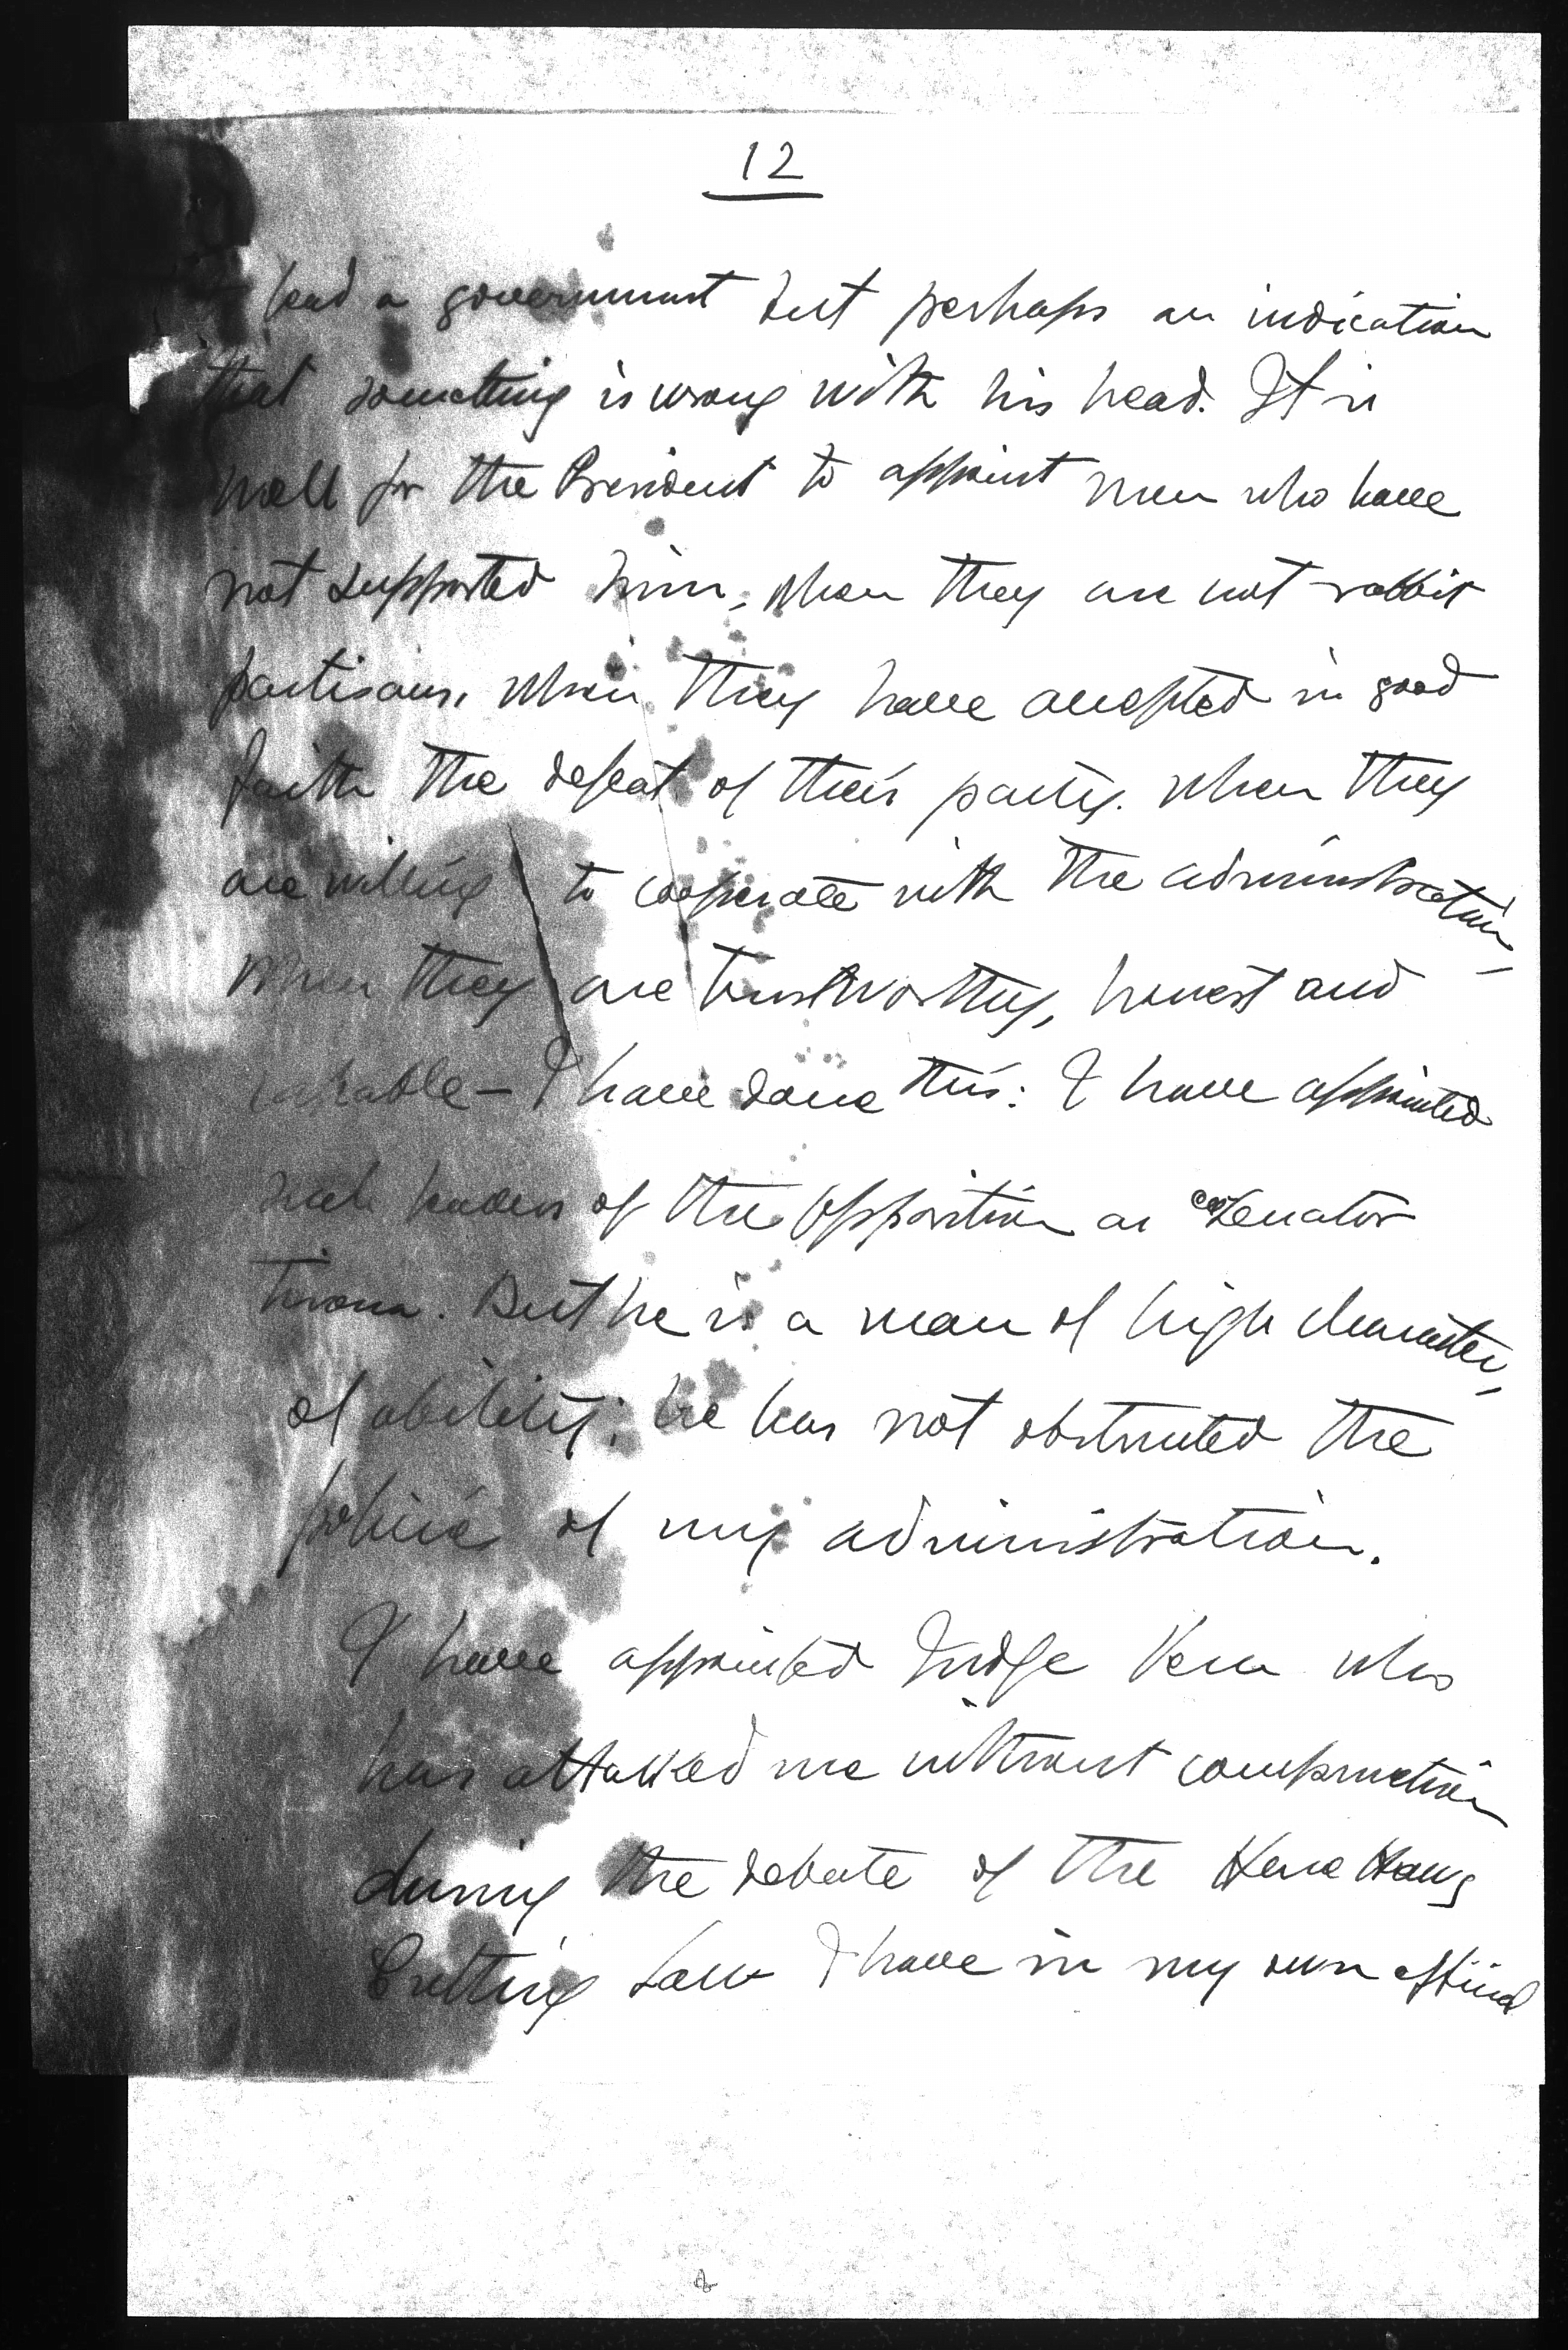 12
head a government but perhaps an indication
that something is wrong with his head. It is
well for the President to appoint men who have
not supported him, when they are not rabbit
partisans, when they have accepted in good
faith the defeat of their party. when they
are willing to cooperate with the administration,
when they are trustworthy, honest and
– I have done this: I have appointed
such leaders of the opposition as Senator
Tirona. But he is a man of high character,
of ability; he has not obstructed the
policie of my administration.
I have appointed Judge Vera who
has attacked me without compunction
during the debate of the Hare Haws
Cutting Law I have in my own official